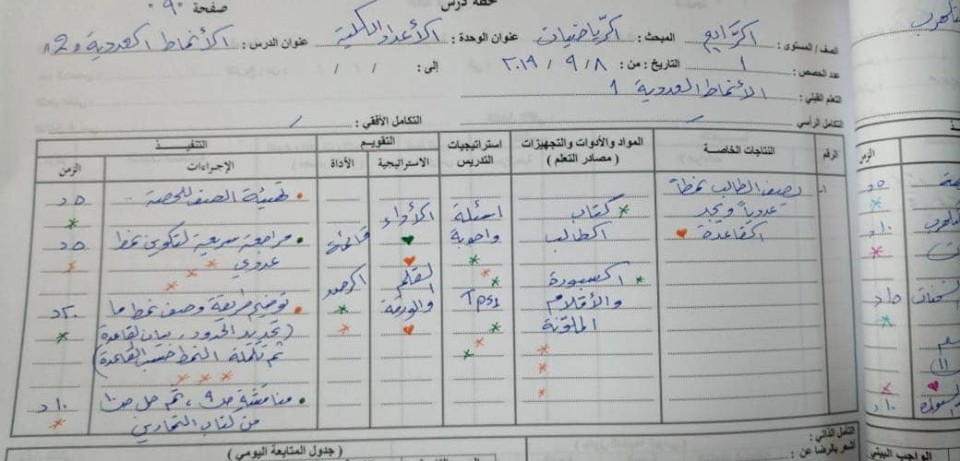 خطة درس
صفحة ٩٠
الصف / المستوى : الرابع المبحث : الرياضيات عنوان الوحدة : الأعداد الكلية عنوان الدرس : الأنماط العددية و2
عدد الحصص : ١ التاريخ : من : ٨ / ٩ / ٢٠١٩ إلى : / /
التعلم القبلي : الأنماط العددية 1
التكامل الرأسي : التكامل الأفقي :
الرقم
النتاجات الخاصة
المواد والأدوات والتجهيزات
( مصادر التعلم )
استراتيجيات
التدريس
التقويم
الاستراتيجية
الأداة
التنفيذ
الإجراءات
الزمن
١-
يصف الطالب نمطاً
عددياً ويجد
القاعدة
كتاب
الطالب
السبورة
والأقلام
الملونة
اسئلة
واجوبة
الأداء
القلم
والورقة
قائمة
الرصد
تهيئة الصف للحصة
٥ د
مراجعة سريعة لتكوين نمط
عددي
٥ د
توضيح طريقة وصف نمط ما
٢٠ د
(تحديد الحدود ، بيان القاعدة
ثم تكملة النمط حسب القاعدة)
مناقشة ص٩ ، ثم حل ص١٠
من كتاب التمارين
١٠ د
التأمل الذاتي :
أشعر بالرضا عن :
( جدول المتابعة اليومي )
الزمن
٥ د
١٠ د
١٥ د
(١١)
١٠ د
الواجب البيتي